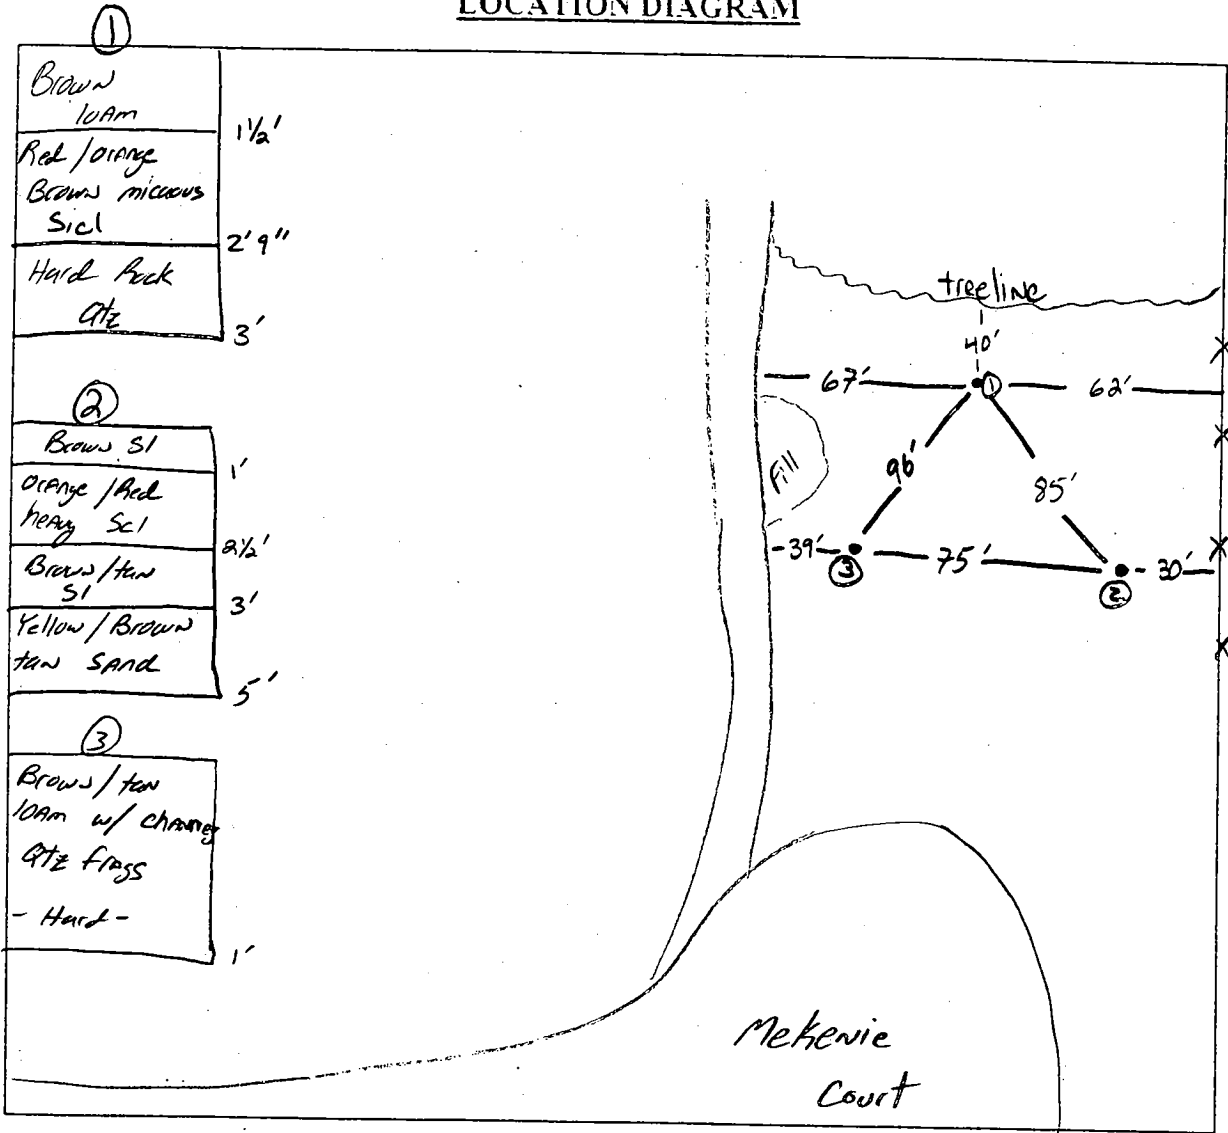 LOCATION DIAGRAM
1
Brown
loam
1 1/2'
Red / orange
Brown micaous
Sicl
2' 9"
Hard Rock
Qtz
3'
2
Brown Sl
1'
orange / Red
heavy Scl
2 1/2'
Brown / tan
Sl
3'
Yellow / Brown
tan Sand
5'
3
Brown / tan
loam w/ channey
Qtz frags
- Hard -
1'
treeline
40'
67'
1
62'
Fill
96'
85'
39'
3
75'
2
30'
X
X
X
X
Mekenie
Court